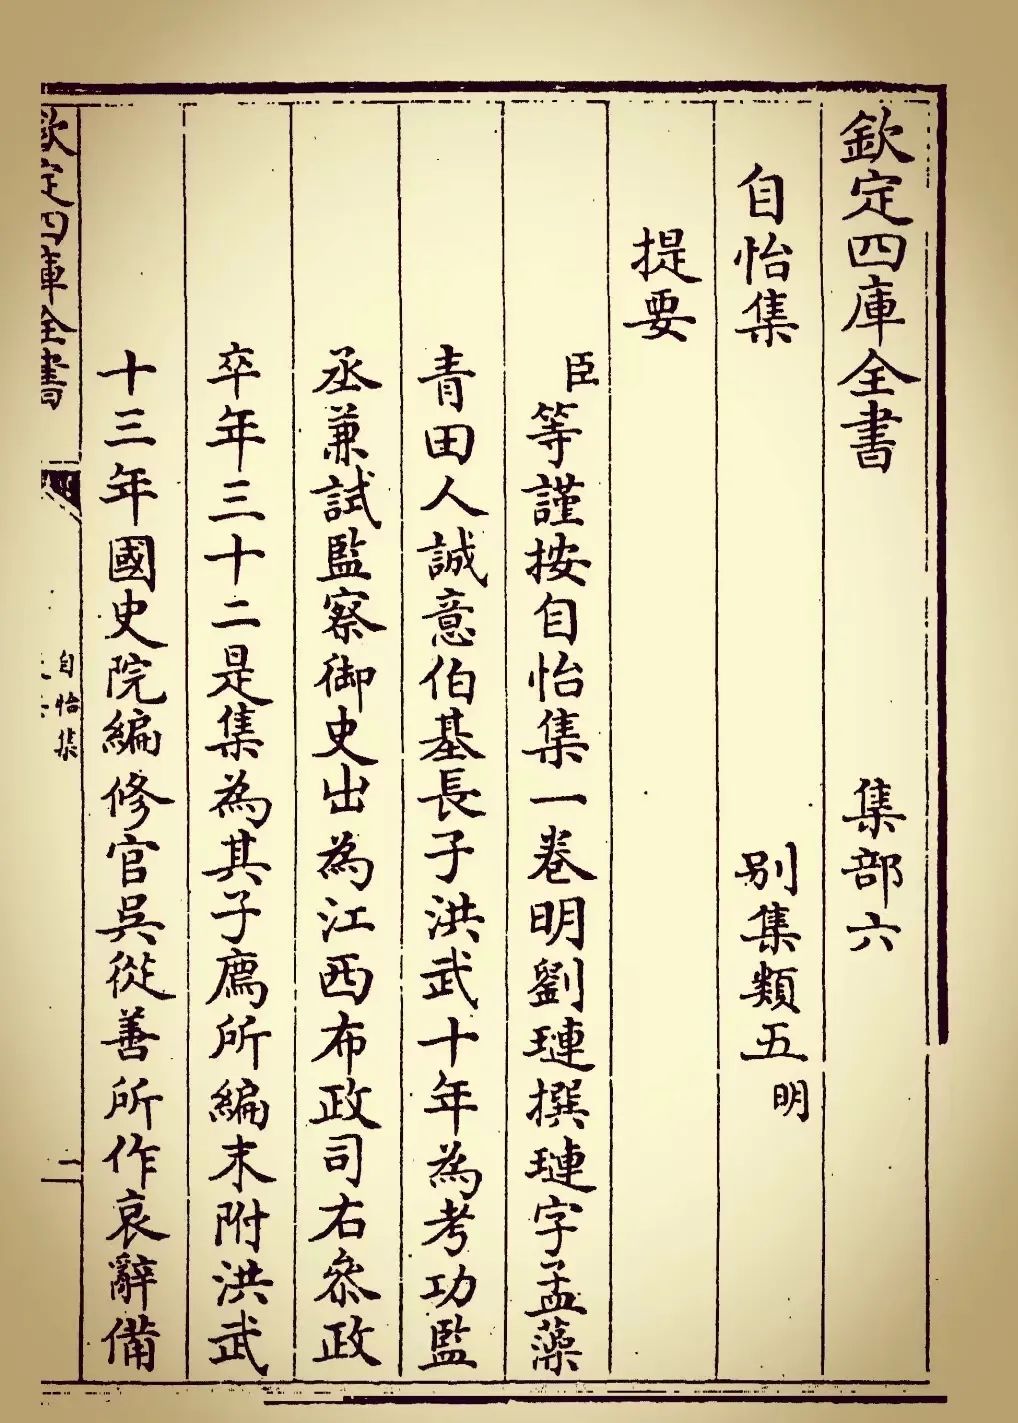 欽定四庫全書 集部六
自怡集 别集類五明
提要
臣等謹按自怡集一巻明劉璉撰璉字孟藻
青田人誠意伯基長子洪武十年為考功監
丞兼試監察御史出為江西布政司右叅政
卒年三十二是集為其子廌所編末附洪武
十三年國史院編修官吳從善所作哀辭備
欽定四庫全書
自怡集
一